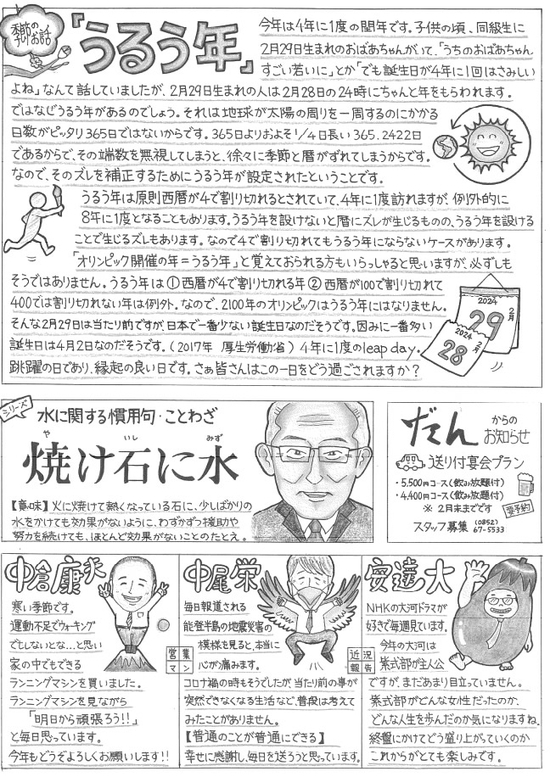 季節のお話
『うるう年』
今年は4年に1度の閏年です。子供の頃、同級生に
2月29日生まれのおばあちゃんがいて、「うちのおばあちゃん
すごい若いに」とか「でも誕生日が4年に1回はさみしい
よね」なんて話していましたが、2月29日生まれの人は2月28日の24時にちゃんと年をもらわれます。
ではなぜうるう年があるのでしょう。それは地球が太陽の周りを一周するのにかかる
日数がピッタリ365日ではないからです。365日よりおよそ1/4日長い365.2422日
であるからで、その端数を無視してしまうと、徐々に季節と暦がずれてしまうからです。
なので、そのズレを補正するためにうるう年が設定されたということです。
うるう年は原則西暦が4で割り切れるとされていて、4年に1度訪れますが、例外的に
8年に1度となることもあります。うるう年を設けないと暦にズレが生じるものの、うるう年を設ける
ことで生じるズレもあります。なので4で割り切れてもうるう年にならないケースがあります。
「オリンピック開催の年=うるう年」と覚えておられる方もいらっしゃると思いますが、必ずしも
そうではありません。うるう年は①西暦が4で割り切れる年②西暦が100で割り切れて
400では割り切れない年は例外。なので、2100年のオリンピックはうるう年にはなりません。
そんな2月29日は当たり前ですが、日本で一番少ない誕生日なのだそうです。因みに一番多い
誕生日は4月2日なのだそうです。(2017年 厚生労働省) 4年に1度のleap day.
跳躍の日であり、縁起の良い日です。さぁ皆さんはこの一日をどう過ごされますか?
2024
2月
29
2024
2月
28
シリーズ
水に関する慣用句・ことわざ
焼け石に水
や いし みず
【意味】火に焼けて熱くなっている石に、少しばかりの
水をかけても効果がないように、わずかづつ援助や
努力を続けても、ほとんど効果がないことのたとえ。
だんからの
お知らせ
送り付宴会プラン
・5,500円コース(飲み放題付)
・4,400円コース(飲み放題付)
※2月末までです
要予約
スタッフ募集 (0852)
67-5533
営業マン
近況報告
中倉康太
寒い季節です。
運動不足でウォーキング
でもしないとな…と思い
家の中でもできる
ランニングマシンを買いました。
ランニングマシンを見ながら
「明日から頑張ろう!!」
と毎日思っています。
今年もどうぞよろしくお願いします!!
中尾栄
毎日報道される
能登半島の地震災害の
模様を見ると、本当に
心が痛みます。
コロナ禍の時もそうでしたが、当たり前の事が
突然できなくなる生活など、普段は考えて
みたことがありません。
【普通のことが普通にできる】
幸せに感謝し、毎日を送ろうと思っています。
安達大
NHKの大河ドラマが
好きで毎週見ています。
今年の大河は
紫式部が主人公
ですが、まだあまり目立っていません。
紫式部がどんな女性だったのか、
どんな人生を歩んだのか気になりますね。
終盤にかけてどう盛り上がっていくのか
これからがとても楽しみです。